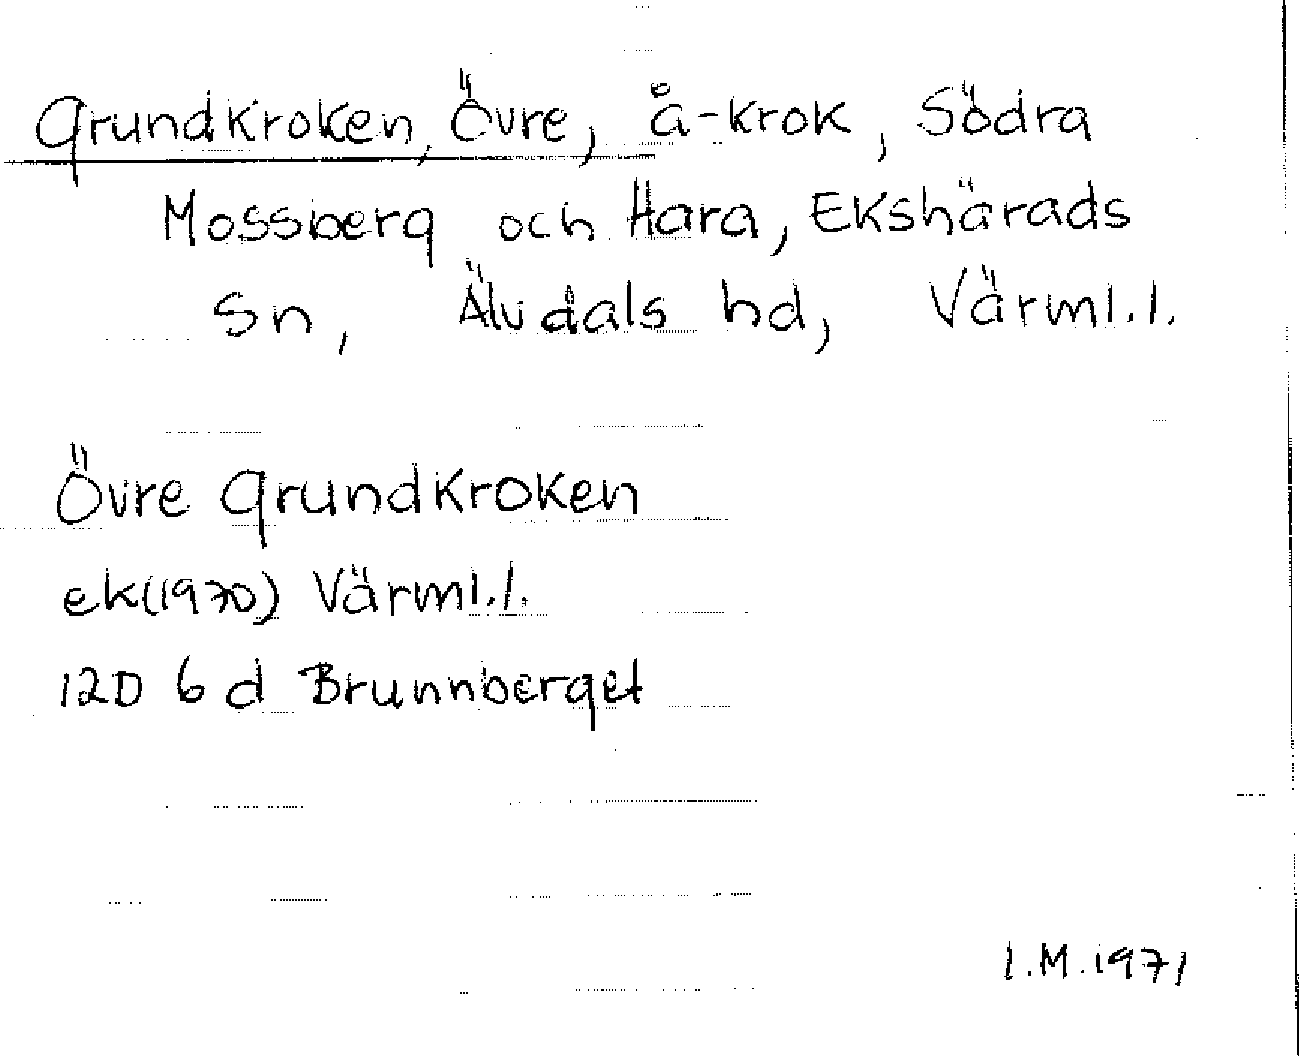 Grundkroken, Övre, å-krok, Södra
Mossberg och Hara, Ekshärads
sn, Älvdals hd, Värml.l.
Övre Grundkroken
ek(1970) Värml.l.
12D 6 d Brunnberget
I.M.1971